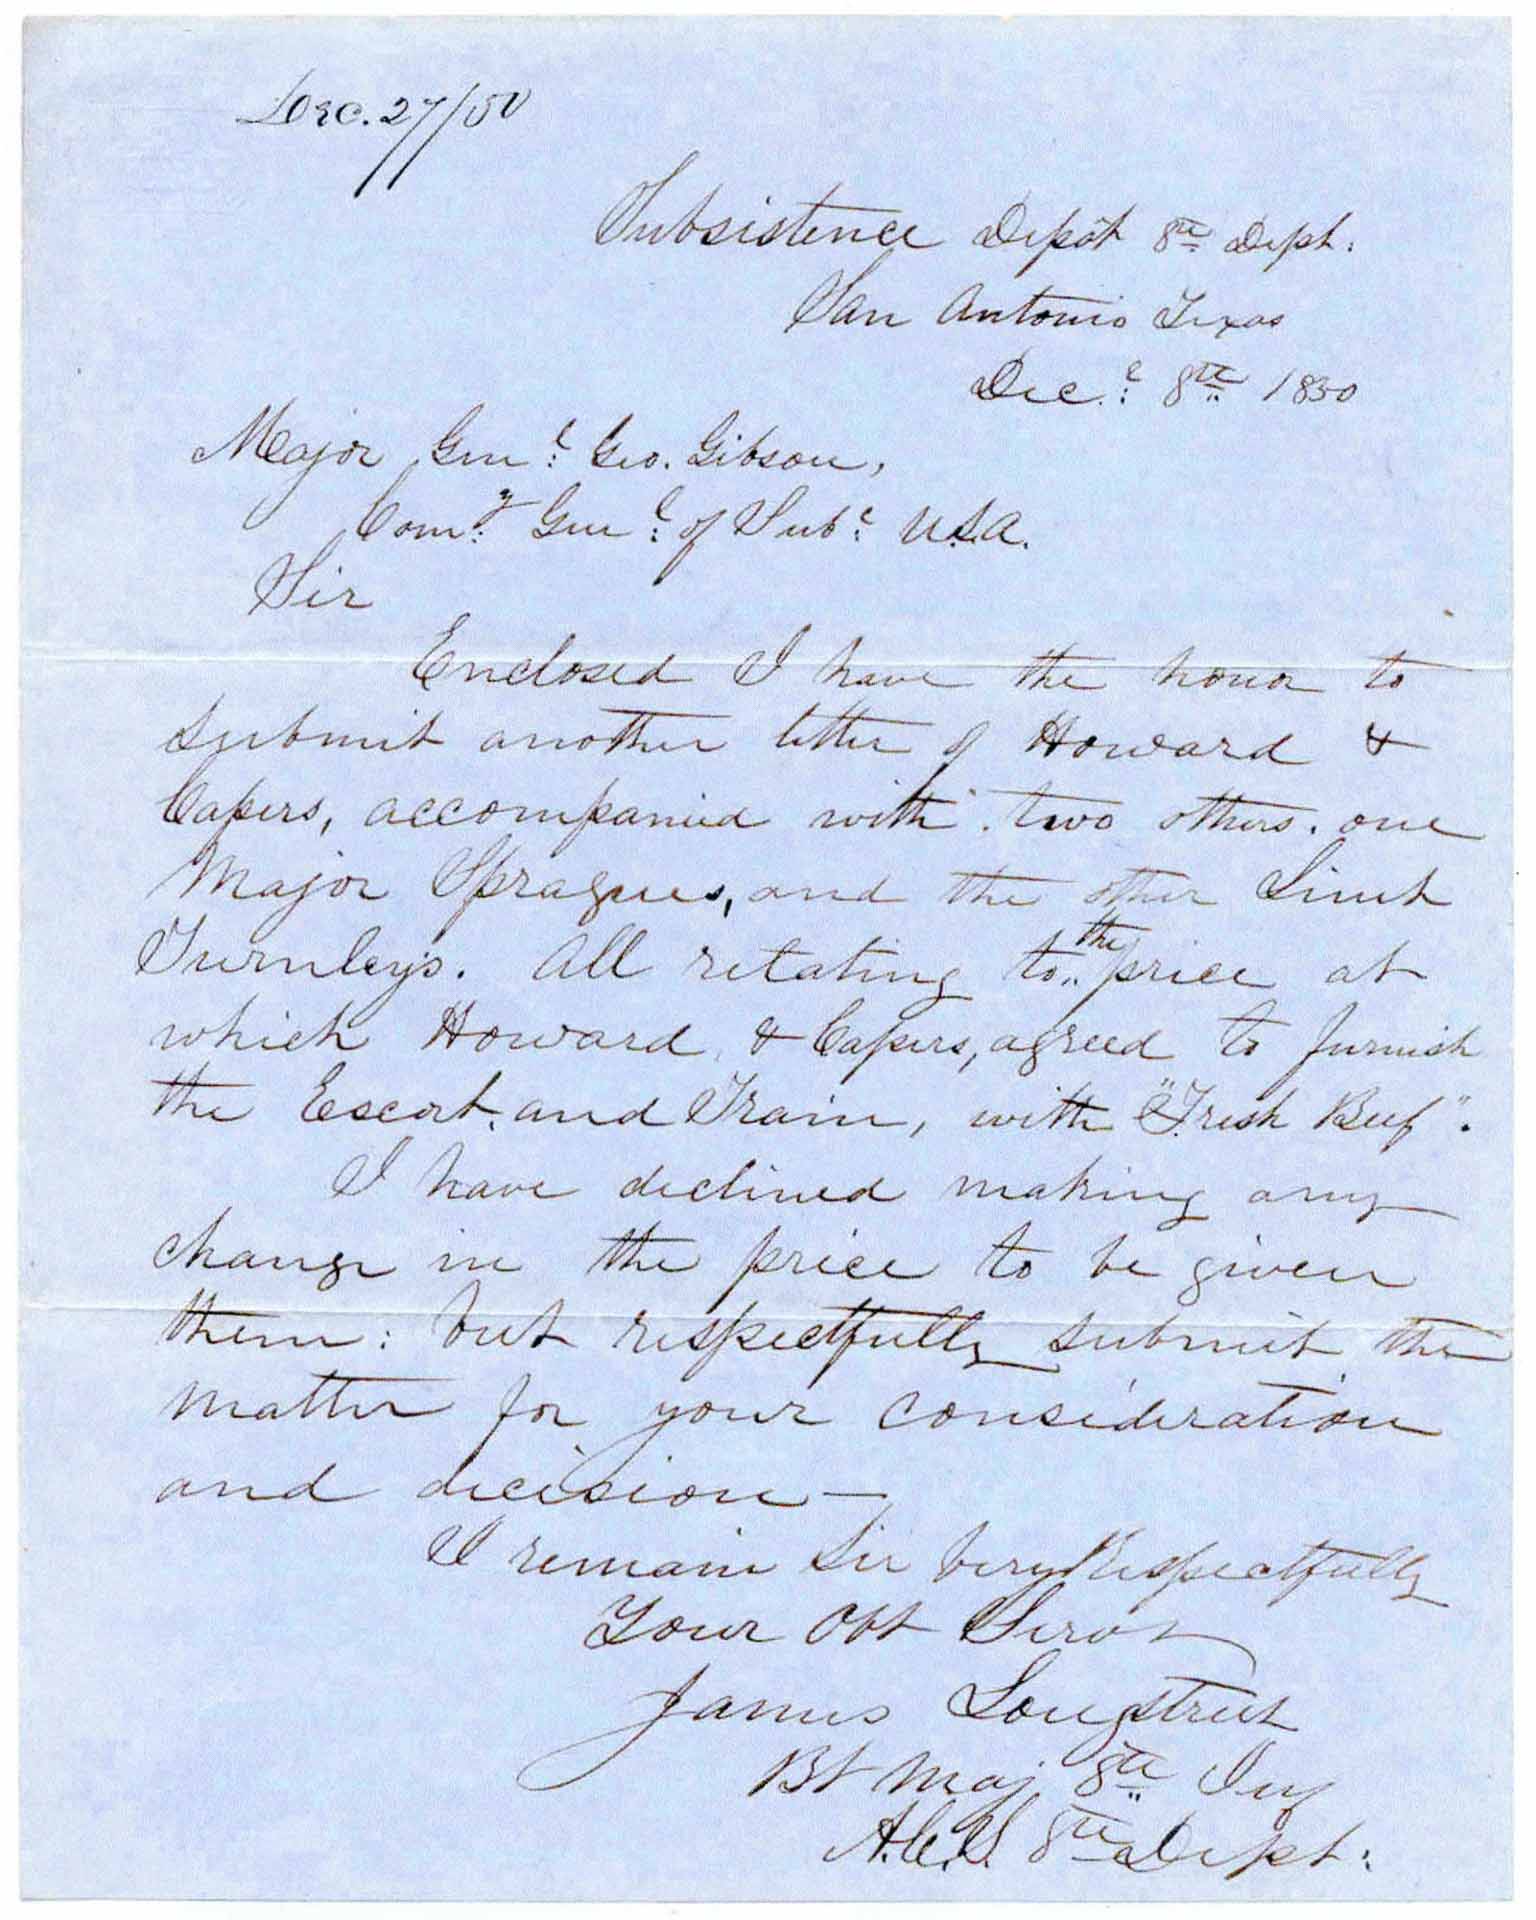 Dec. 27/50
Subsistence Depôt 8th Dept.
San Antonio Texas
Dec.r 8th 1850
Major Genl. Geo. Gibson,
Comy. Genl. of Subs. U.S.A.
Sir
Enclosed I have the honor to
submit another letter of Howard &
Capers, accompanied with two others. one
Major Spragues, and the other Lieut
Turnleys. All relating to the price at
which Howard & Capers, agreed to furnish
the Escort, and Train, with "Fresh Beef".
I have declined making any
change in the price to be given
them: but respectfully submit the
matter for your consideration
and decision—
I remain Sir Very Respectfully
Your Obt Servt
James Longstreet
Bt Maj 8th Inf
A.C.S. 8th Dept.